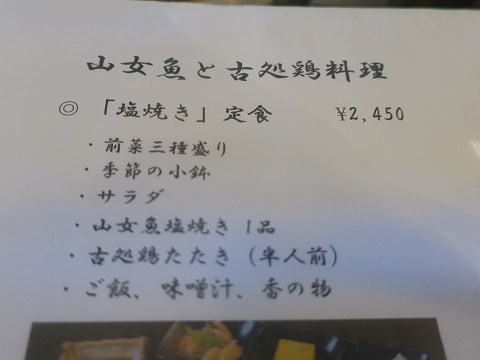 山女魚と古処鶏料理
◎ 「塩焼き」定食 ¥2,450
・前菜三種盛り
・季節の小鉢
・サラダ
・山女魚塩焼き 1品
・古処鶏たたき（半人前）
・ご飯、味噌汁、香の物